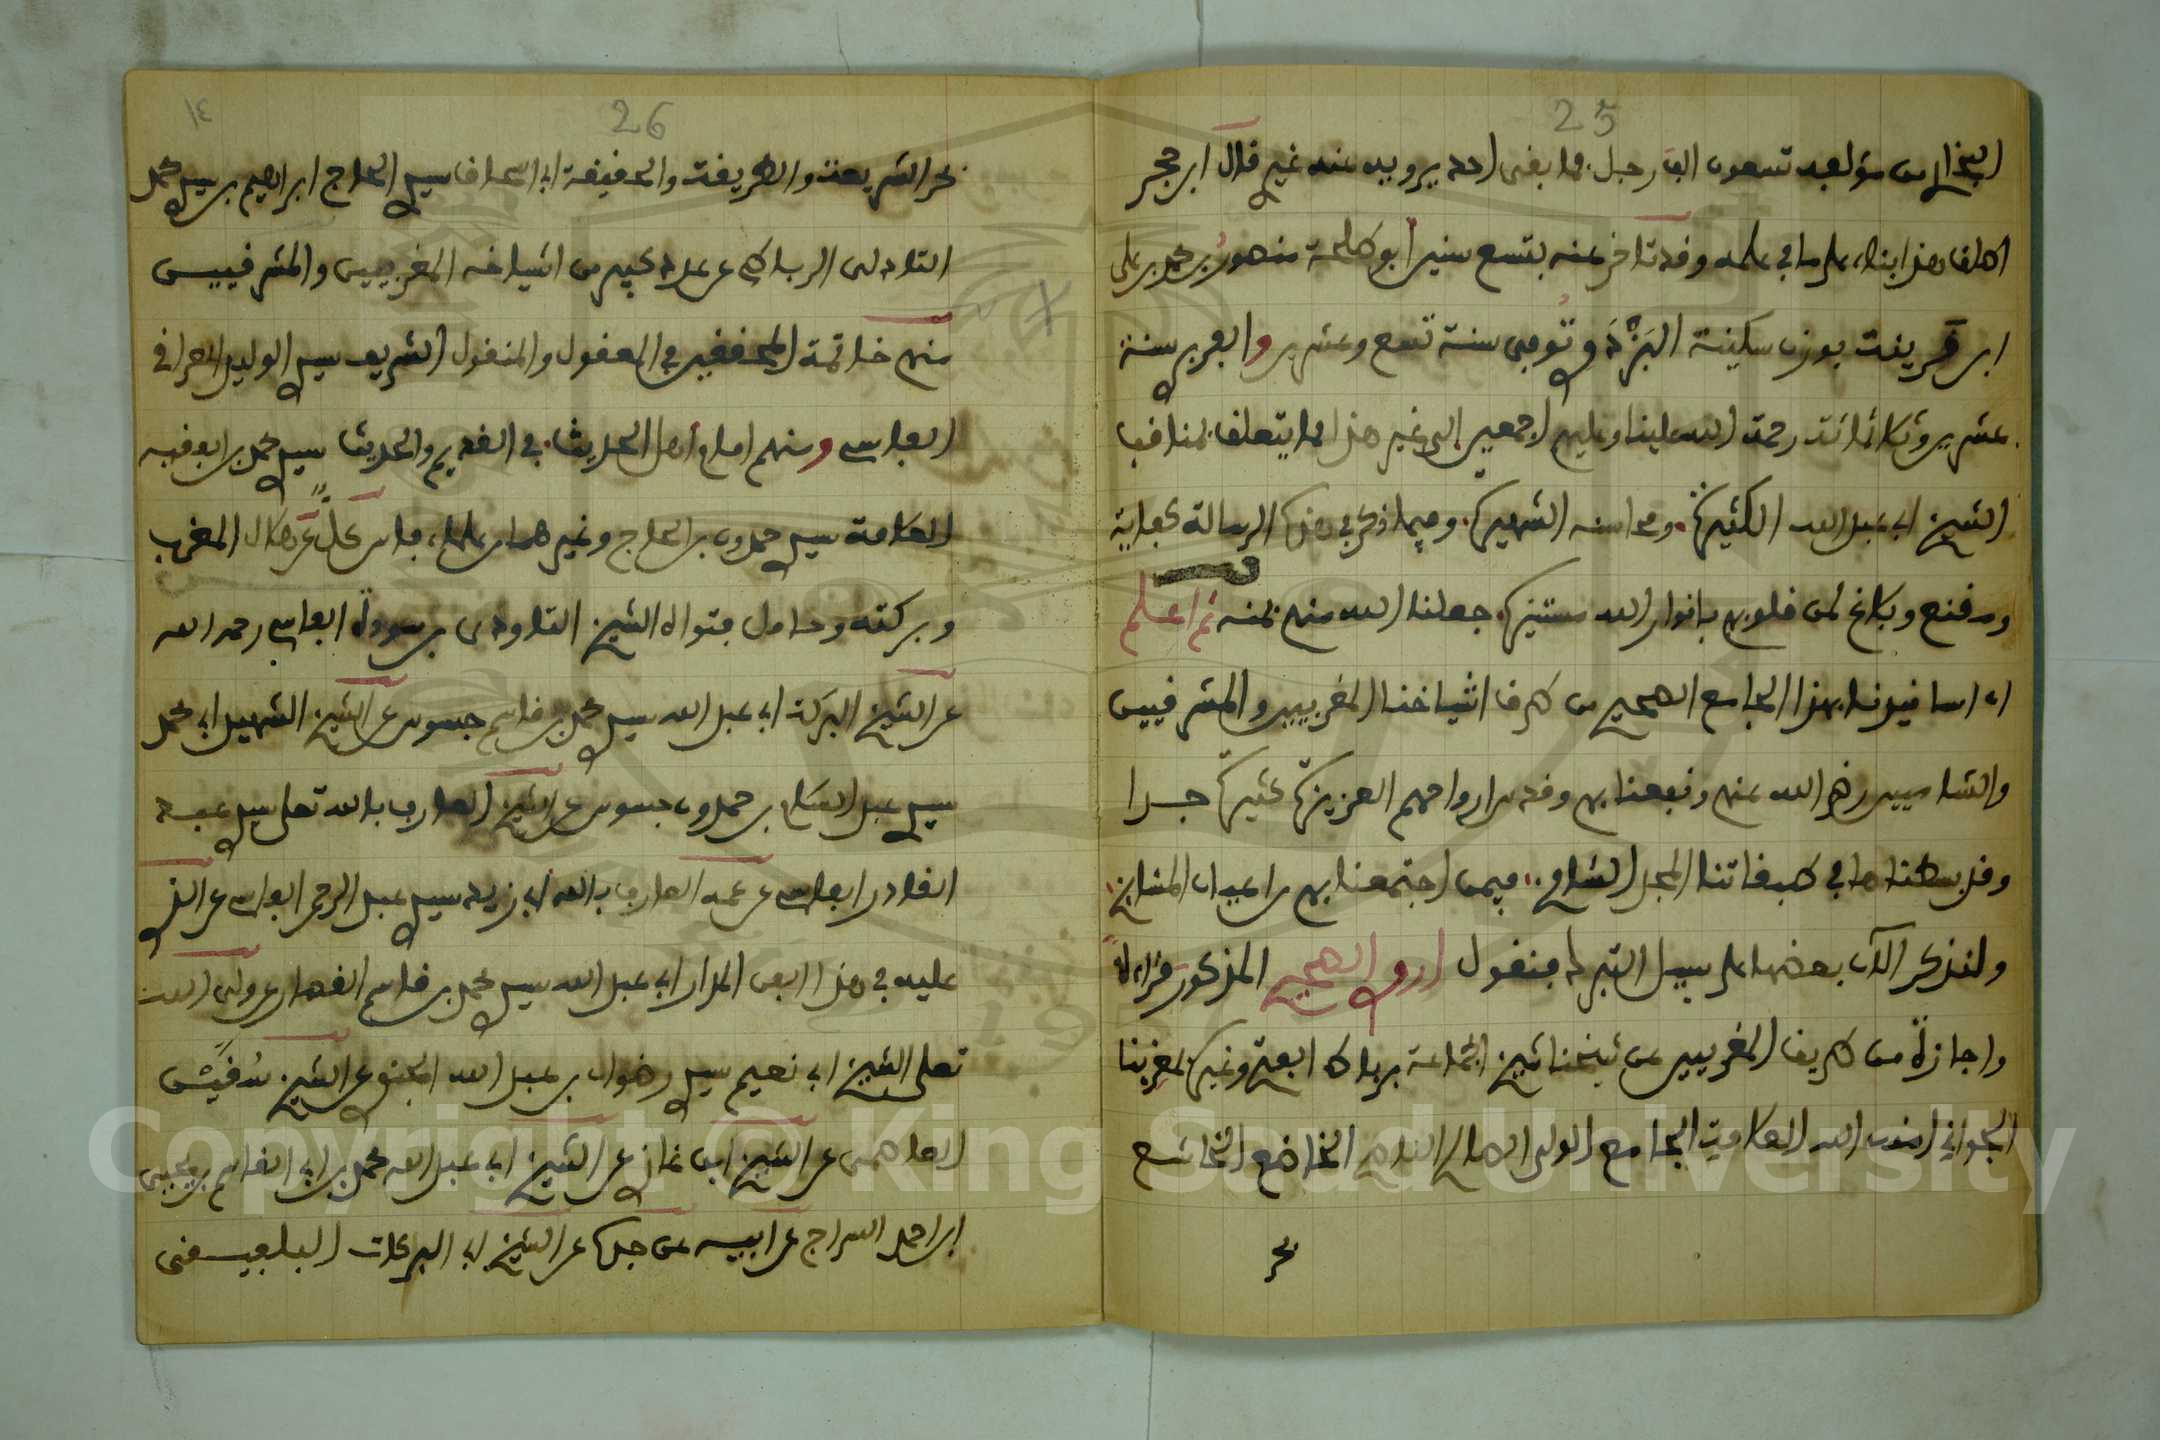 25
البخاري من مؤلفه تسعون الف رجل فما بقى احد يرويه عنه غيري قال ابن حجر
اطلق هذا بناء على ما في علمه وقد تاخر عنه بتسع سنين أبو طلحة منصور بن محمد بن علي
ابن قرينة بوزن سكينة البَزْدَوِي وتُوفي سنة تسع وعشرين والعربر سنة
عشرين وثلاثمائة رحمة الله علينا وعليهم اجمعين الى غير هذا مما يتعلق بمناقب
الشيخ ابي عبد الله الكثيرة ومحاسنه الشهيرة وفيما ذكر في هذه الرسالة كفاية
ومقنع وبلاغ لمن قلوبهم بانوار الله مستنيرة جعلنا الله منهم بمنه ثم اعلم
ان اسانيدنا بهذا الجامع الصحيح من طرق اشياخنا المغربيين والمشرقيين
والشاميين رضي الله عنهم ونفعنا بهم وقدس ارواحهم العزيزة كثيرة جدا
وقد بسطناها في طبقاتنا المجد الشامخ فيمن اجتمعنا بهم من اعيان المشايخ
ولنذكر الآن بعضها على سبيل التبرك فنقول اروي الصحيح المذكور قراءةً
واجازةً من طريق المغربيين عن شيخنا شيخ الجماعة برباط الفتح وغيره بمغربنا
الجواني امنه الله العلامة الجامع الولي الصالح الناصح الخاضع الخاشع
بحر
26
١٤
بحر الشريعة والطريقة والحقيقة ابي اسحاق سيدي الحاج ابراهيم بن سيدي محمد
التادلي الرباطي عن عدة كثير من اشياخه المغربيين والمشرقيين
منهم خاتمة المحققين في المعقول والمنقول الشريف سيدي الوليد العراقي
الفاسي ومنهم امام أهل الحديث في القديم والحديث سيدي محمد بن
العلامة سيدي حمدون بن الحاج وغيرهما من علماء فاس كلٌّ عن هلال المغرب
وبركته وحامل فتواه الشيخ التاودي بن سودة الفاسي رحمه الله
عن الشيخ البركة ابي عبد الله سيدي محمد بن قاسم جسوس عن الشيخ الشهيد ابي محمد
سيدي عبد السلام بن حمدون جسوس عن الشيخ العارف بالله تعلى سيدي عبد
القادر الفاسي عن عمه العارف بالله ابي زيد سيدي عبد الرحمن الفاسي عن الذي
عليه في هذا الفن المدار ابي عبد الله سيدي محمد بن قاسم القصار عن ولي الله
تعلى الشيخ ابي نعيم سيدي رضوان بن عبد الله الجنوي عن الشيخ سُقَّيْن
العاصمي عن الشيخ ابن غازي عن الشيخ ابي عبد الله محمد بن ابي القاسم بن يحيى
ابن احمد السراج عن ابيه عن جده عن الشيخ ابي البركات البلفيقي
Copyright © King Saud University